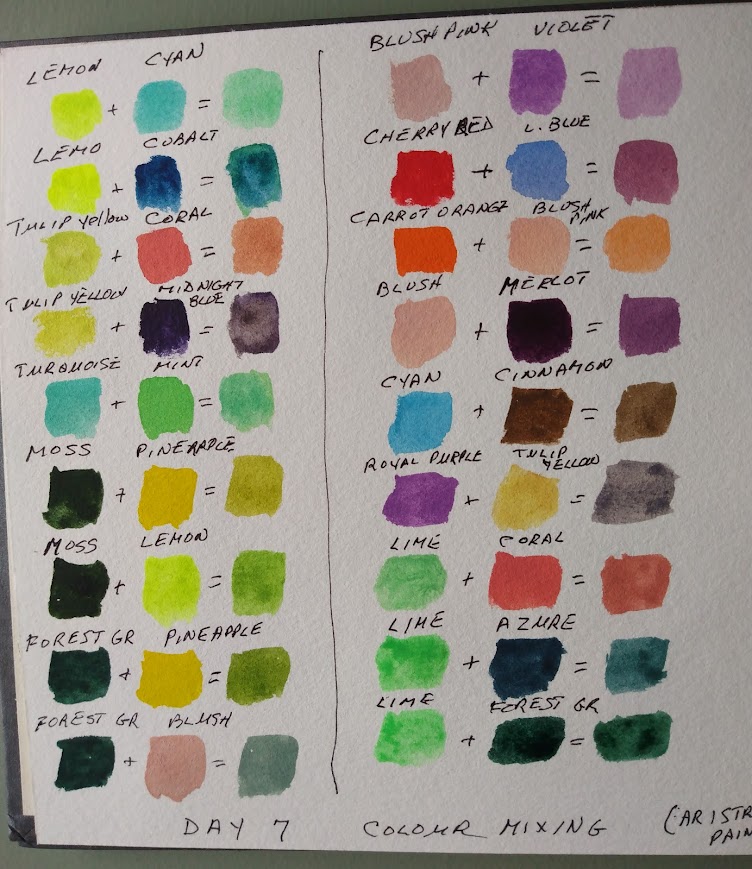 LEMON CYAN
+ =
LEMO COBALT
+ =
TULIP Yellow CORAL
+ =
TULIP YELLOW MIDNIGHT BLUE
+ =
TURQUOISE MINT
+ =
MOSS PINEAPPLE
+ =
MOSS LEMON
+ =
FOREST GR PINEAPPLE
+ =
FOREST GR BLUSH
+ =
BLUSH PINK VIOLET
+ =
CHERRY RED L. BLUE
+ =
CARROT ORANGE BLUSH PINK
+ =
BLUSH MERLOT
+ =
CYAN CINNAMON
+ =
ROYAL PURPLE TULIP YELLOW
+ =
LIME CORAL
+ =
LIME AZURE
+ =
LIME FOREST GR
+ =
DAY 7 COLOUR MIXING (ARISTR
PAIN